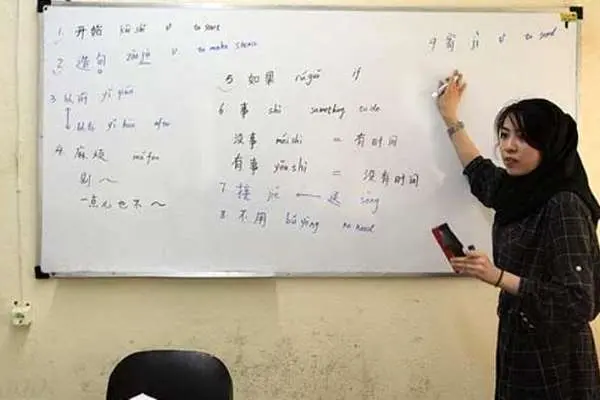 1. 开始 kāi shǐ v to start
2 造句 zào jù v to make
3 以前 yǐ qián
以后 yǐ hòu after
4. 麻烦 má fan
别～
一点儿也不～
5 如果 rúguǒ if
6 事 shì something to do
没事 méi shì = 有时间
有事 yǒu shì = 没有时间
7. 接 jiē — 送 sòng
8. 不用 bú yòng no need
9 jì v to send